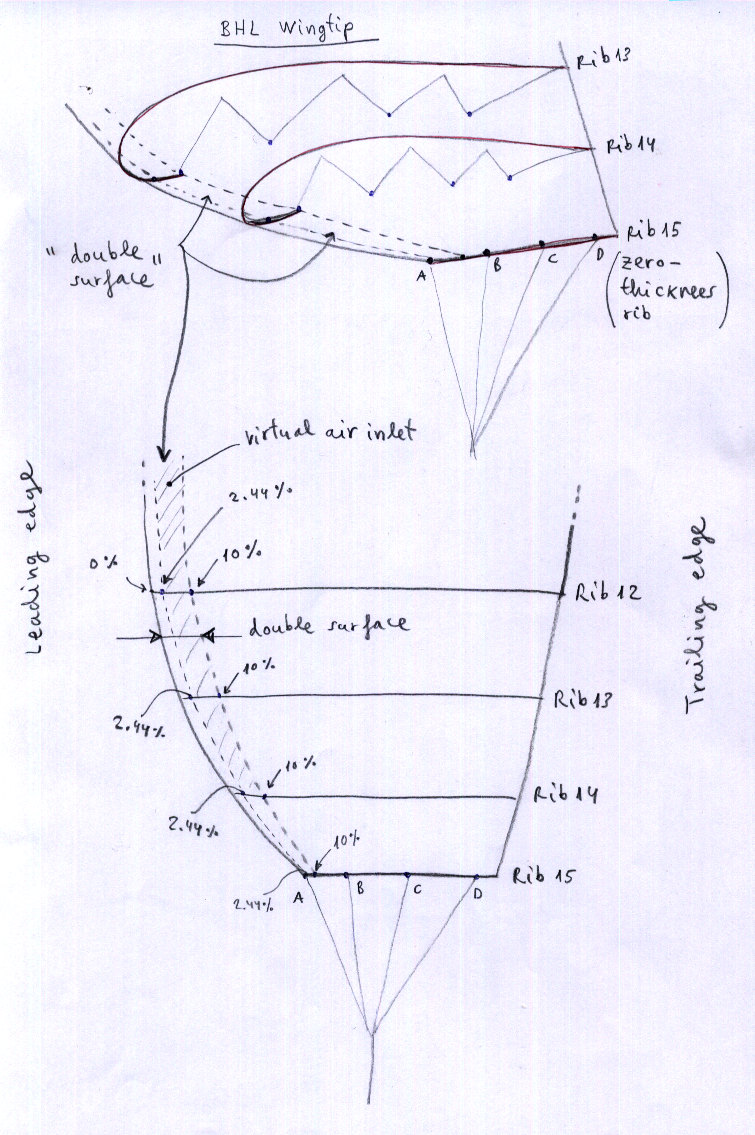 BHL Wingtip
Rib 13
Rib 14
Rib 15
(zero-
thicknees
rib)
"double
surface"
A
B
C
D
virtual air inlet
2.44%
10%
0%
Rib 12
double surface
10%
2.44%
Rib 13
10%
2.44%
Rib 14
10%
2.44%
Rib 15
A
B
C
D
Leading edge
Trailing edge